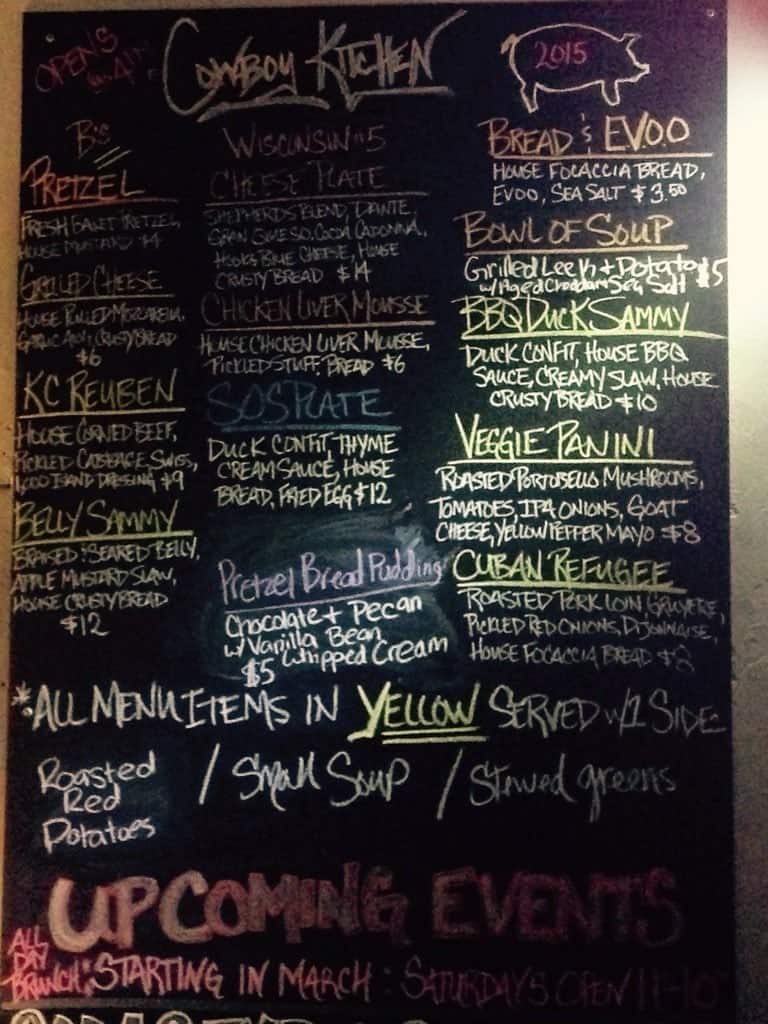 OPENS
COWBOY KITCHEN
2015
B's
PRETZEL
HOUSE MUSTARD $4
GRILLED CHEESE
HOUSE PULLED MOZZARELLA,
GARLIC AIOLI, CRUSTY BREAD
$6
KC REUBEN
HOUSE CORNED BEEF,
PICKLED CABBAGE, SWISS,
1,000 ISLAND DRESSING $9
BELLY SAMMY
BRAISED & SEARED BELLY,
APPLE MUSTARD SLAW,
HOUSE CRUSTY BREAD
$12
WISCONSIN 5
CHEESE PLATE
SHEPHERDS BLEND, DANTE,
GRAN QUESO, COCOA CARDONA,
HOOKS BLUE CHEESE, HOUSE
CRUSTY BREAD $14
CHICKEN LIVER MOUSSE
HOUSE CHICKEN LIVER MOUSSE,
PICKLED STUFF, BREAD $6
SOS PLATE
DUCK CONFIT, THYME
CREAM SAUCE, HOUSE
BREAD, FRIED EGG $12
Pretzel Bread Pudding
Chocolate + Pecan
w/ Vanilla Bean
$5 Whipped Cream
BREAD & EVOO
HOUSE FOCACCIA BREAD,
EVOO, SEA SALT $3.50
BOWL OF SOUP
Grilled Leek + Potato $5
w/ Aged Cheddar + Sea Salt
BBQ DUCK SAMMY
DUCK CONFIT, HOUSE BBQ
SAUCE, CREAMY SLAW, HOUSE
CRUSTY BREAD $10
VEGGIE PANINI
ROASTED PORTOBELLO MUSHROOMS,
TOMATOES, IPA ONIONS, GOAT
CHEESE, YELLOW PEPPER MAYO $8
CUBAN REFUGEE
ROASTED PORK LOIN, GRUYERE,
PICKLED RED ONIONS, DIJONNAISE,
HOUSE FOCACCIA BREAD
*ALL MENU ITEMS IN YELLOW SERVED w/1 SIDE
Roasted
Red
Potatoes
/ Small Soup / Stewed greens
UPCOMING EVENTS
ALL
DAY
BRUNCH: STARTING IN MARCH: SATURDAY'S OPEN 11-10